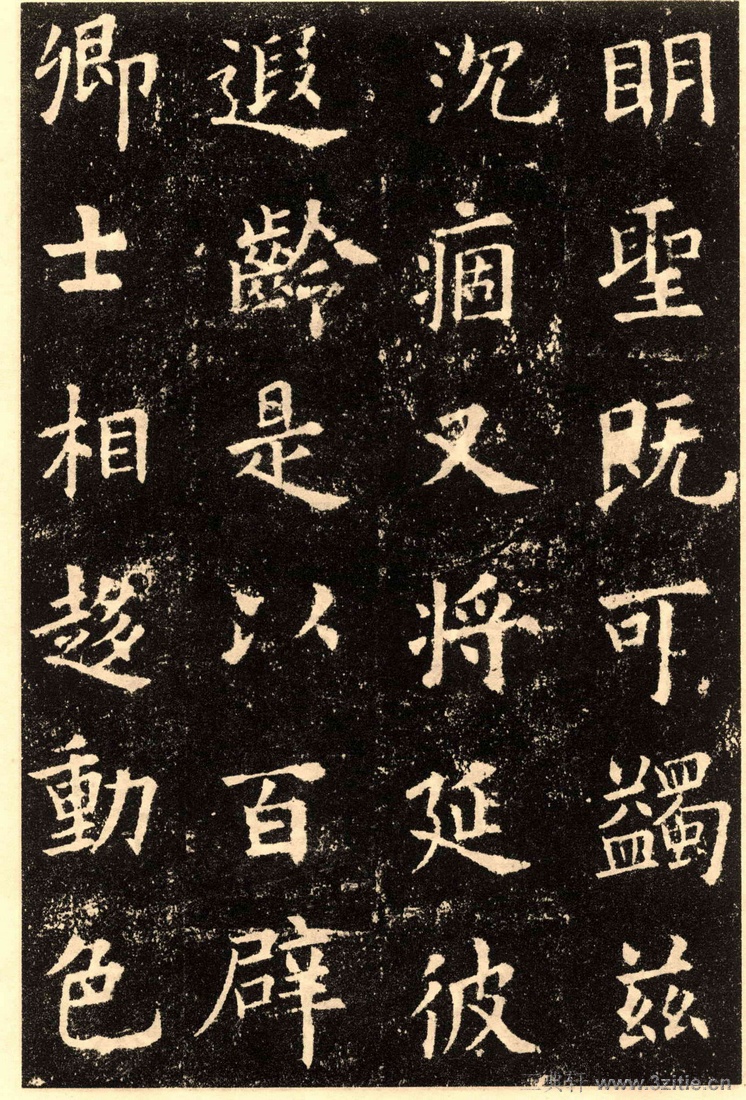 眀聖既可蠲兹
沉痼又将延彼
遐齡是以百辟
卿士相趍動色
www.3zitie.cn